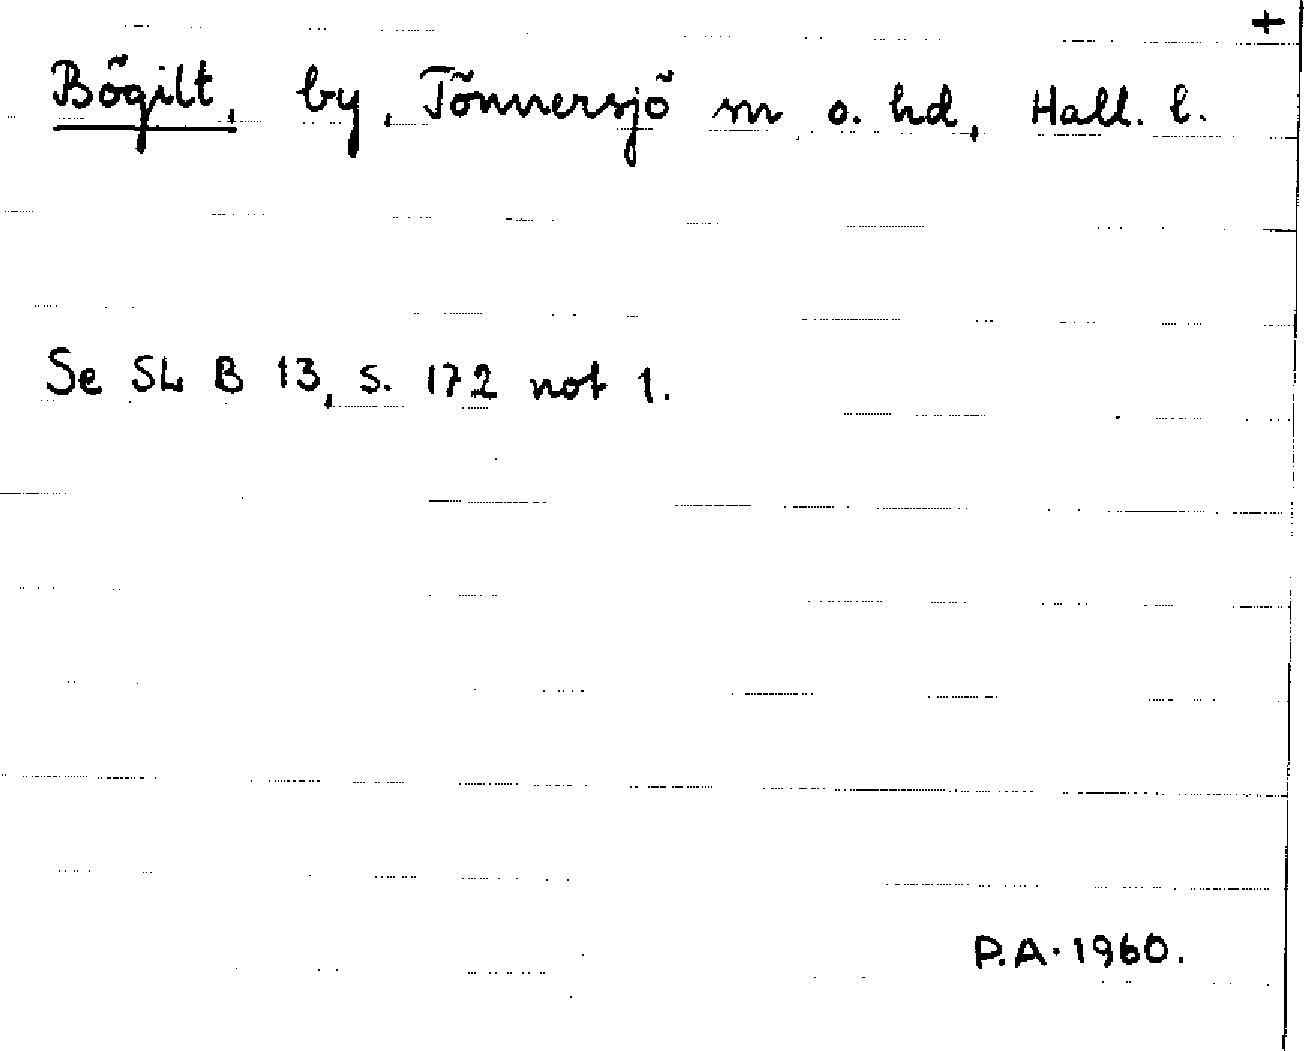 +
Bögilt, by, Tönnersjö sn o. hd, Hall. l.
Se SL B 13, s. 172 not 1.
P.A. 1960.